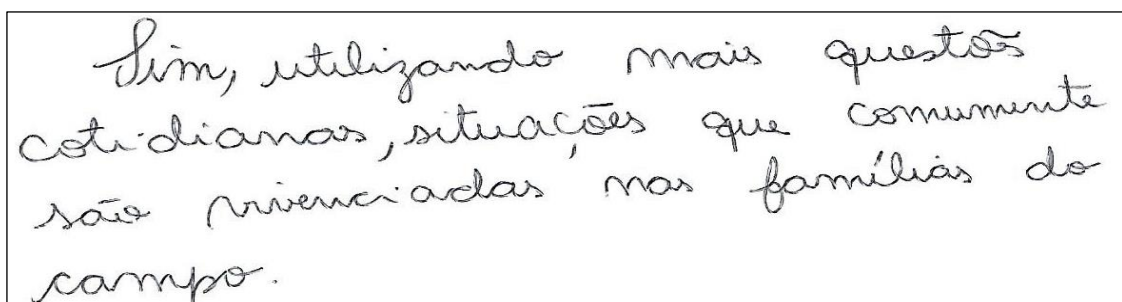 Sim, utilizando mais questões
cotidianas, situações que comumente
são vivenciadas nas famílias do
campo.